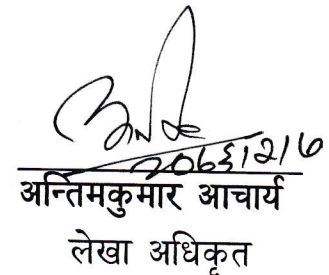 २०७६।२।७
अन्तिमकुमार आचार्य
लेखा अधिकृत